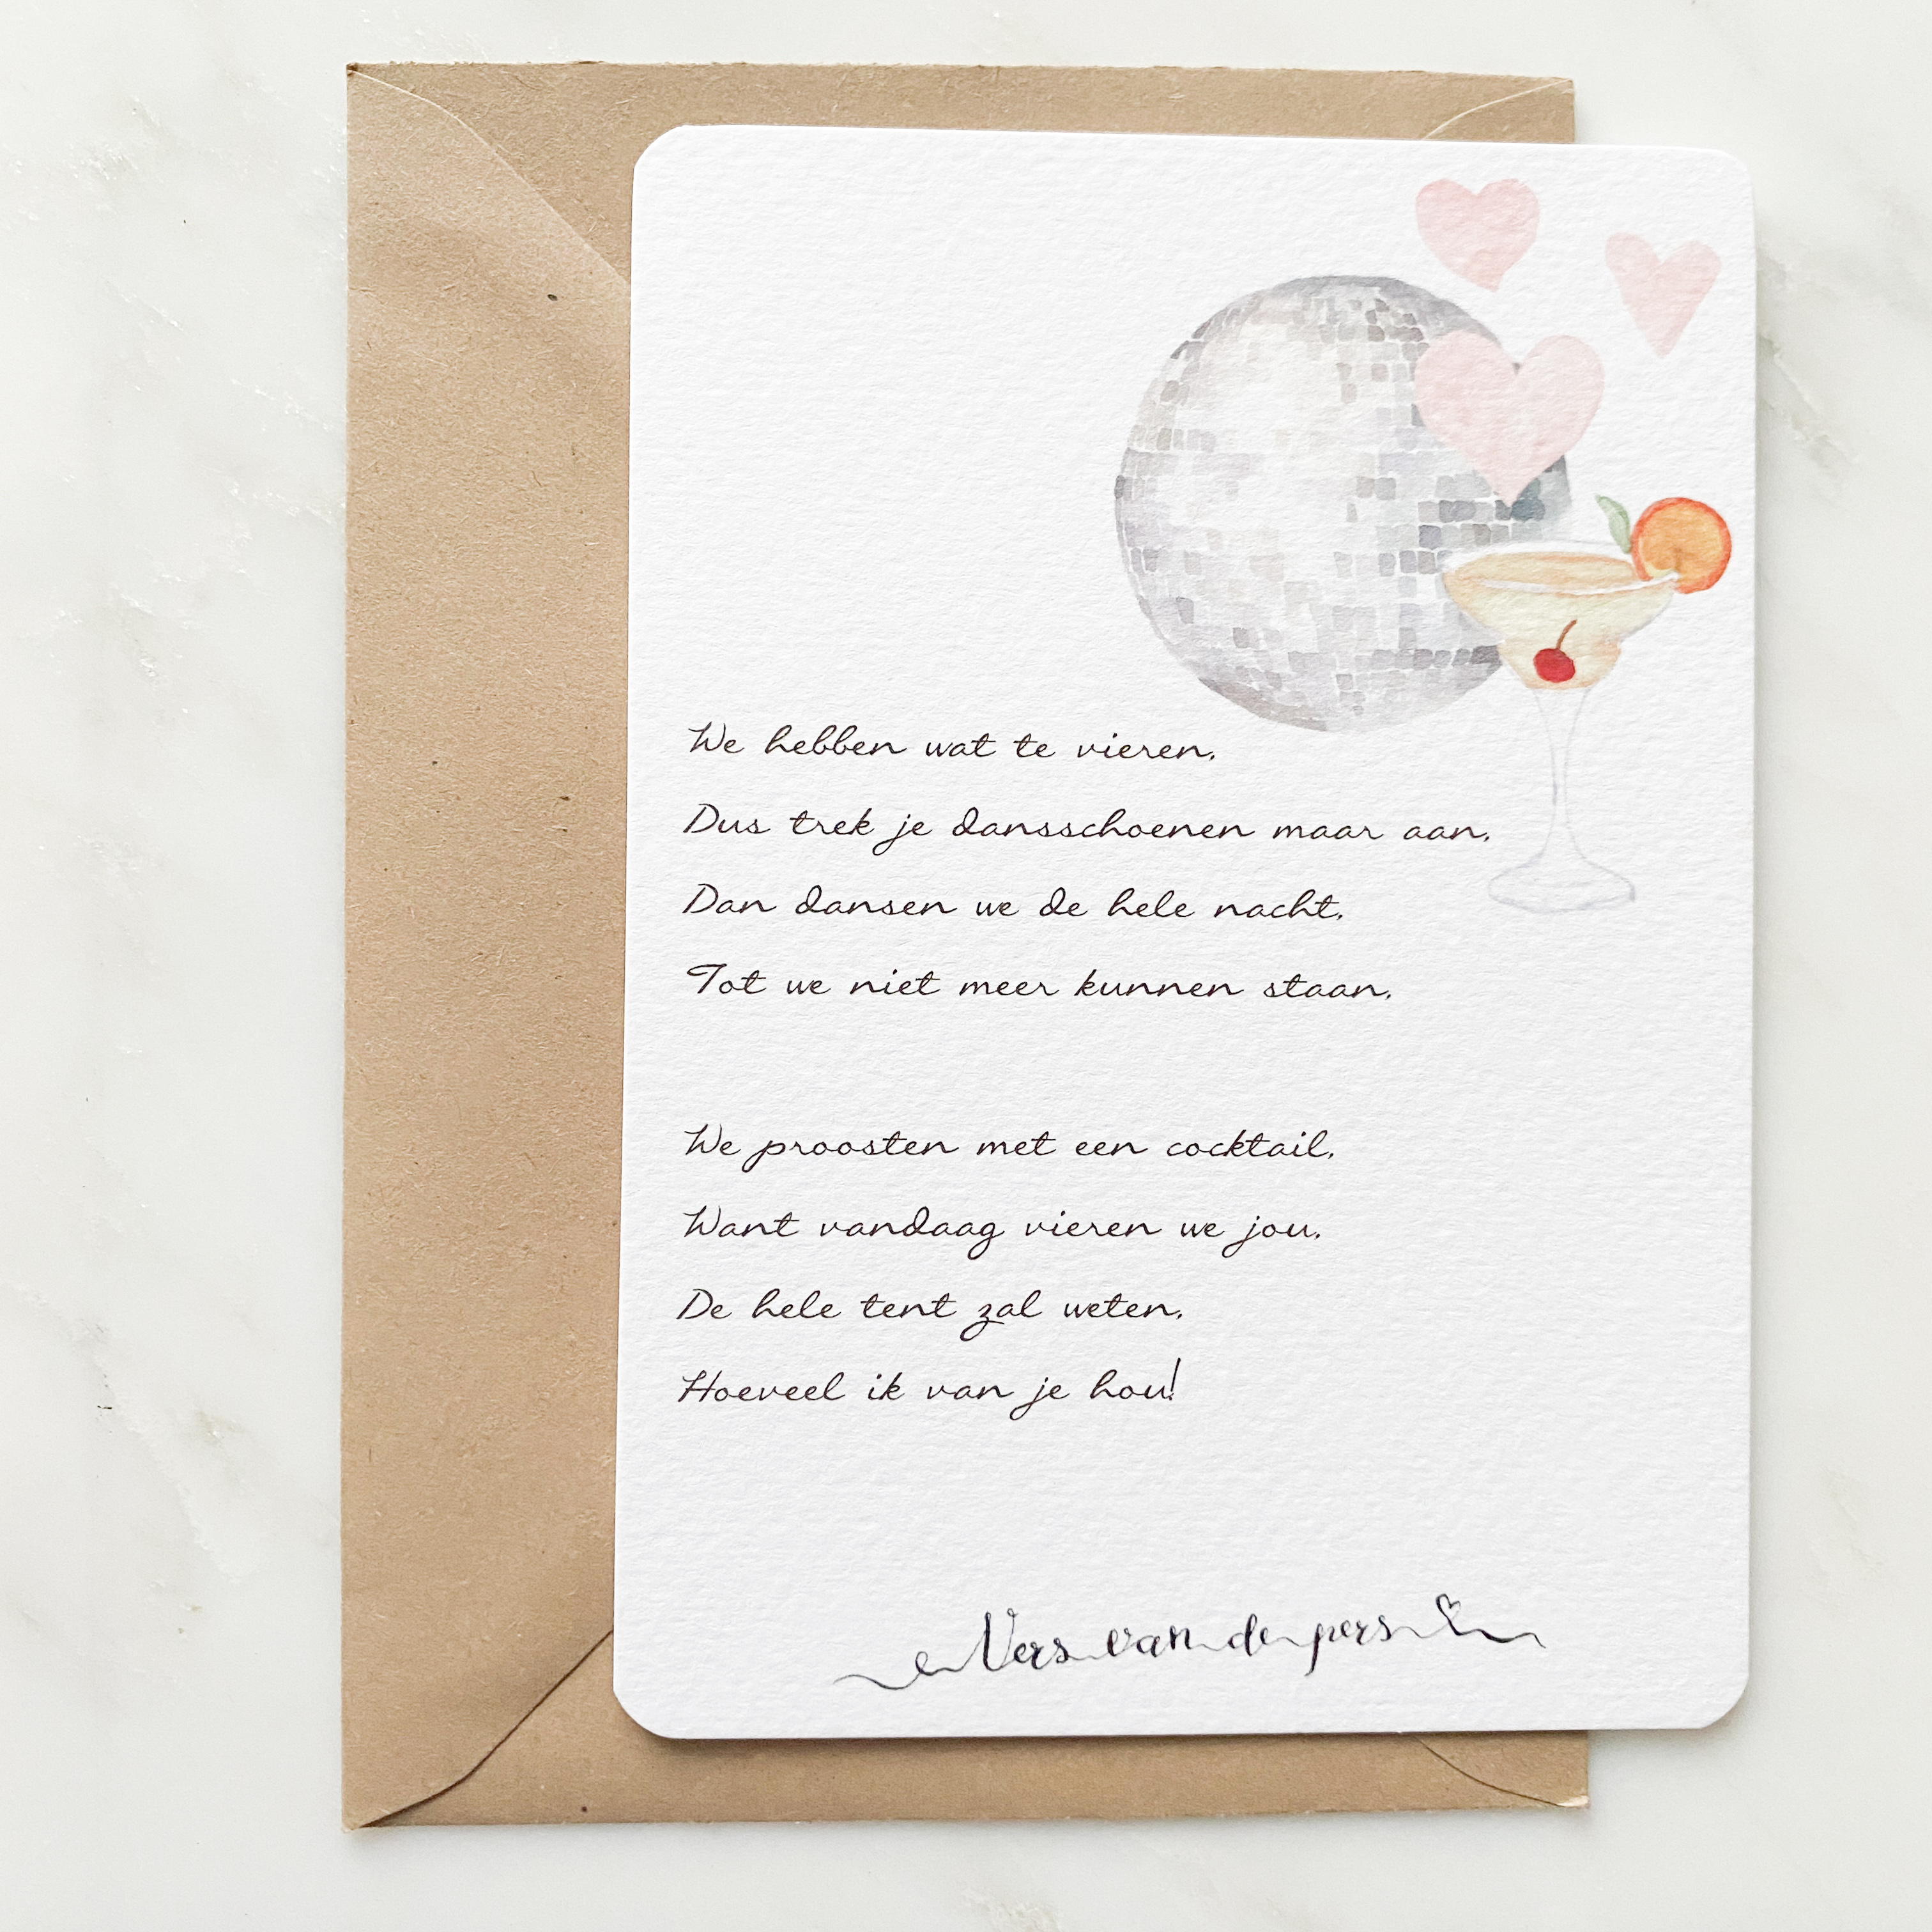 We hebben wat te vieren.
Dus trek je dansschoenen maar aan.
Dan dansen we de hele nacht.
Tot we niet meer kunnen staan.
We proosten met een cocktail.
Want vandaag vieren we jou.
De hele tent zal weten.
Hoeveel ik van je hou!
Vers van de pers